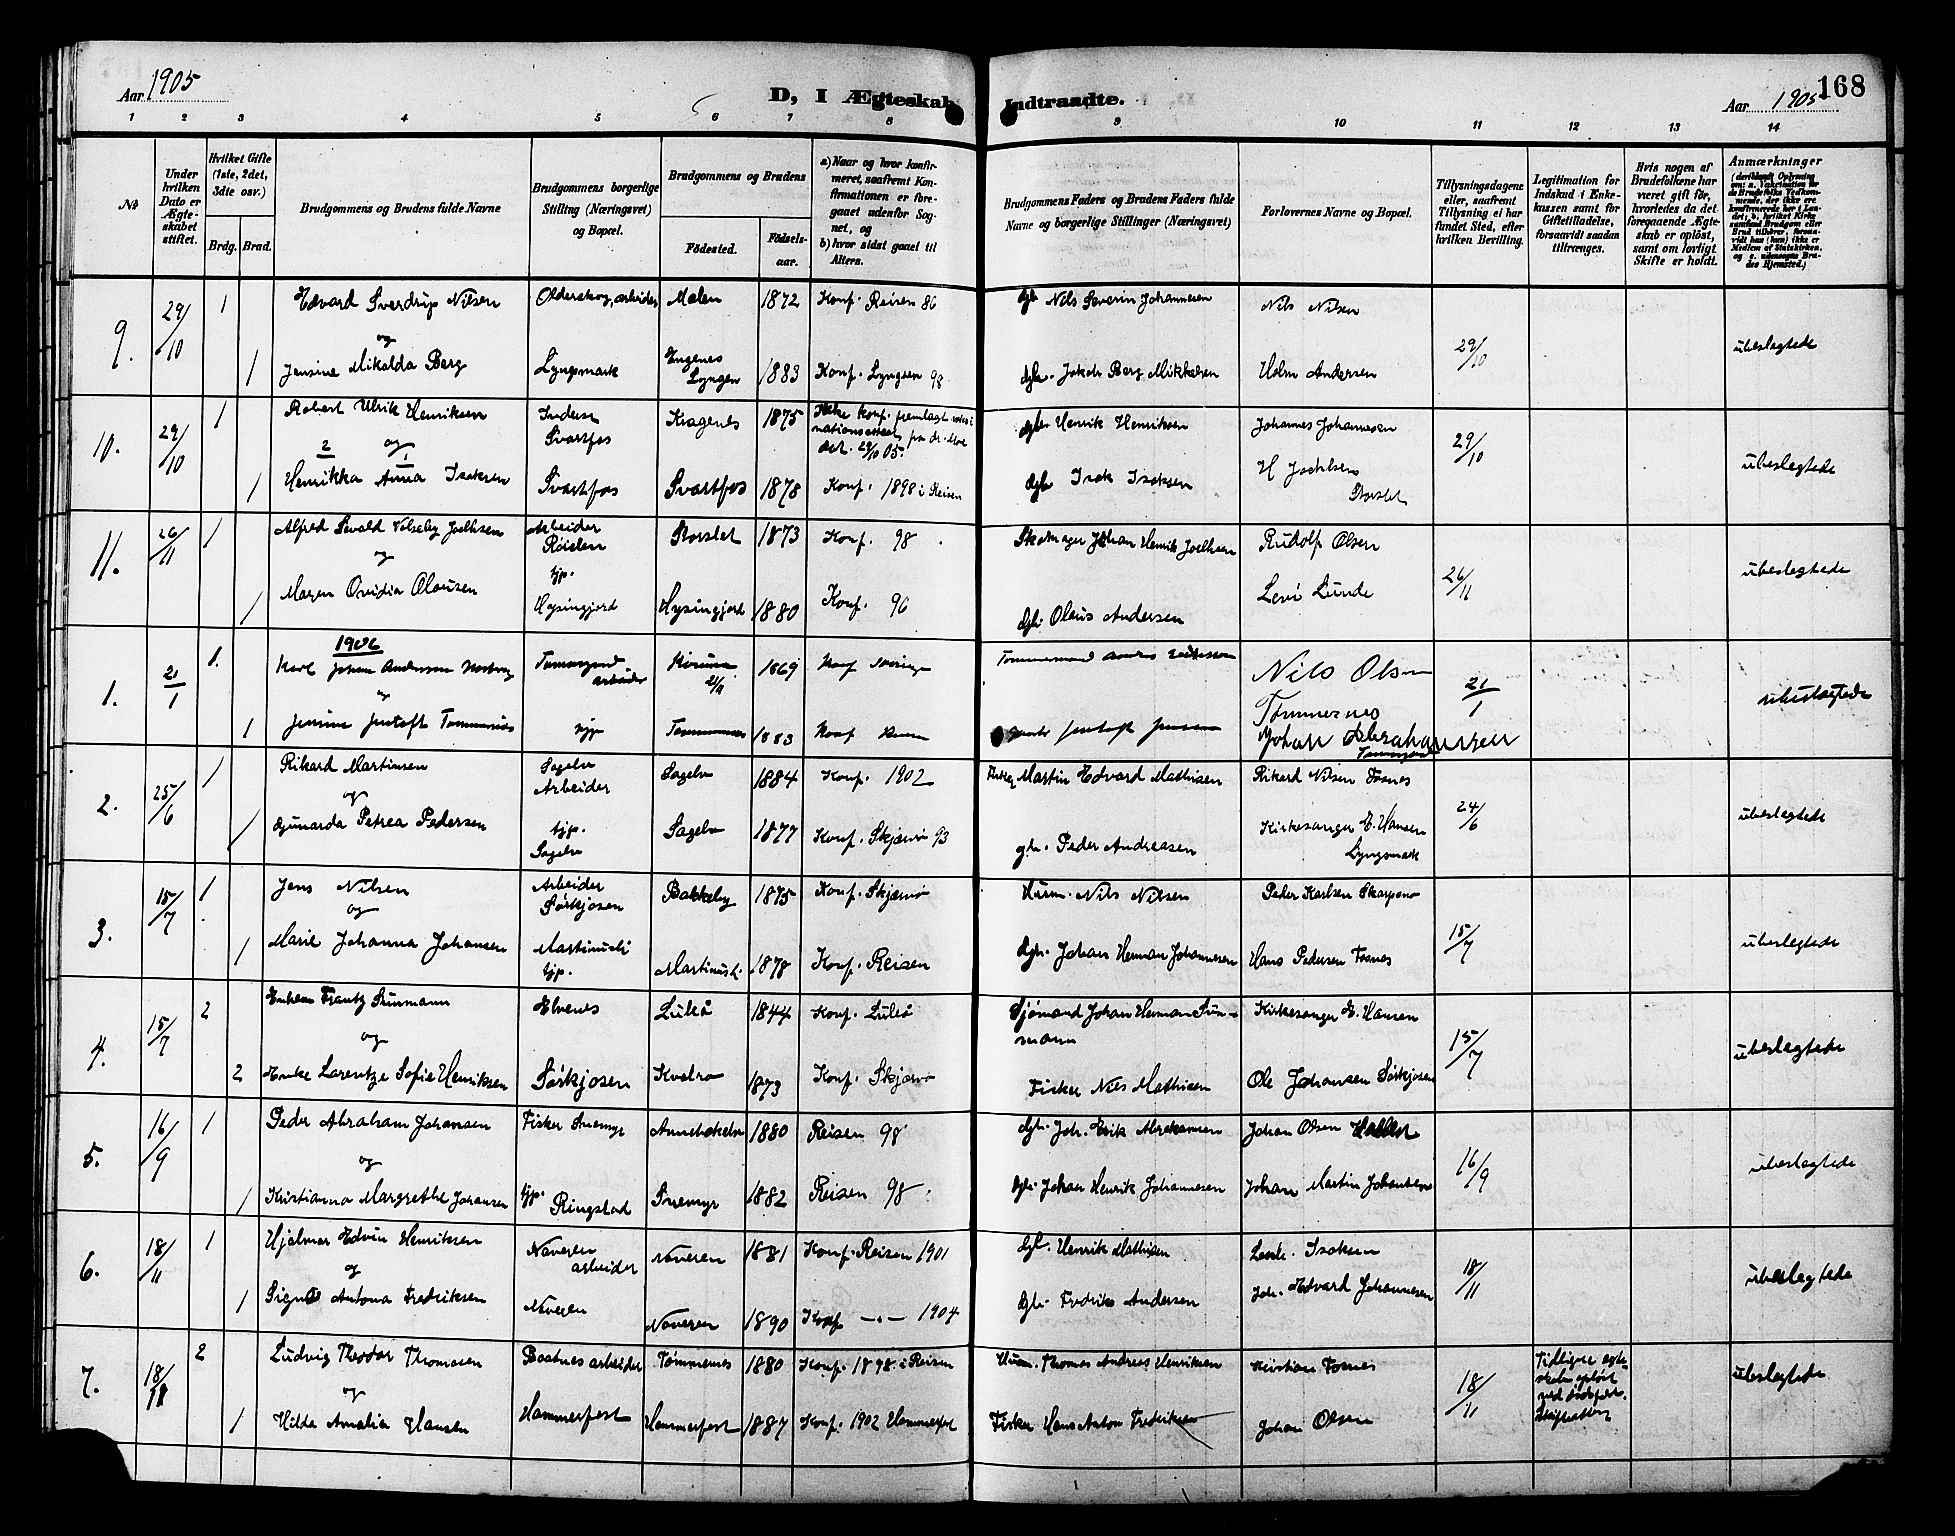 Aar 1905
D, I Ægteskab Indtraadte.
Aar 1905
168
1 2 3 4 5 6 7 8 9 10 11 12 13 14
No
Under hvilken Dato er Ægteskabet stiftet.
Hvilket Gifte (1ste, 2det, 3dte osv.)
Brdg. Brud.
Brudgommens og Brudens fulde Navne
Brudgommens borgerlige Stilling (Næringsvei) og Bopæl.
Brudgommens og Brudens
Fødested. Fødselsaar.
a) Naar og hvor konfirmeret, saafremt Konfirmationen er foregaaet udenfor Sognet, og
b) hvor sidst gaaet til Alters.
Brudgommens Faders og Brudens Faders fulde Navne og borgerlige Stillinger (Næringsvei)
Forlovernes Navne og Bopæl.
Tillysningsdagene eller, saafremt Tillysning ei har fundet Sted, efter hvilken Bevilling.
Legitimation for Indskud i Enkekassen samt for Giftetilladelse, forsaavidt saadan tiltrænges.
Hvis nogen af Brudefolkene har været gift før, hvorledes da det foregaaende Ægteskab er opløst, samt om lovligt Skifte er holdt.
Anmærkninger
9. 29/10 1 Edvard Sverdrup Nilsen Olderskog, arbeider Malen 1872 Konf. Reisen 86 Nils Severin Johannesen Nils Nilsen 29/10 ubeslegtede
og
1 Jensine Mikalda Berg Lyngsmark Engenes Lyngen 1883 Konf. Lyngen 98 gbr. Jakob Berg Mikkelsen Holm Andersen
10. 29/10 1 Robert Ulrik Henriksen Indre Svartfos Kragenes 1875 Ikke konf. fremlagt fra dr. Moe 29/10 05. gbr Henrik Henriksen Johannes Johannesen 29/10 ubeslegtede
2 og 1
1 Henrikka Anna Isaksen Svartfos Svartfos 1878 Konf. 1898 i Reisen gbr Isak Isaksen H Joehlsen Storslet
11. 26/11 1 Alfred Sivald Joelhsen Arbeider Røielen Storslet 1873 Konf. 98 Skomager Johan Henrik Joelhsen Rudolf Olsen 26/11 ubeslegtede
og
1 Maren Ovidia Olausen tjp. Hysingjord Hysingjord 1880 Konf. 96 gbr. Olaus Andersen Levi Lunde
1906
1. 21/1 1. Karl Johan Andersson arbeider Kiruna 1869 Konf Sverige Tømmermand Nils Olsen Tømmernes 21/1 ubeslægtede
og
1 Jensine Jentoft Tømmernes tjp Tømmernes 1883 Konf Jentoft Jensen Johan Abrahamsen
2. 25/6 1 Rikard Martinsen Sagelv Arbeider Sagelv 1884 Konf. 1902 Fisker Martin Edvard Mathisen Rikard Nilsen Fosnes 24/6 ubeslegtede
og
1 Petrea Pedersen tjp. Sagelv Sagelv 1877 Konf. Skjærvø 93 gbr. Peder Andreasen Kirkesanger E. Hansen Lyngsmark
3. 15/7 1 Jens Nilsen Arbeider Sørkjosen Bakkeby 1875 Konf. Skjærvø Husm. Nils Nilsen Peder Karlsen 15/7 ubeslegtede
og
1 Marie Johanna Johansen Martinusli tjp. Martinusli. 1878 Konf. Reisen gbr. Johan Herman Johannesen Hans Pedersen Fosnes
4. 15/7 2 Enkem Frantz Sunmann Elvenes Luleå 1844 Konf. Luleå Sjømand Johan Herman Sunmann Kirkesanger E. Hansen 15/7 ubeslegtede
og
2 Enke Larentze Sofie Henriksen Sørkjosen Kvalvø 1873 Konf. Skjærvø Fisker Nils Mathisen Ole Johansen Sørkjosen
5. 16/9 1 Peder Abraham Johansen Fisker Snemyr 1880 Reisen 98 gbr. Joh. Erik Abrahamsen Johan Olsen 16/9 ubeslegtede
og
1 Kristianna Margrethe Johansen tjp. Ringstad Snemyr 1882 Reisen 98. gbr. Johan Henrik Johannesen Johan Martin Johansen
6. 18/11 1 Hjalmar Edvin Henriksen Naveren arbeider Naveren 1881 Konf. Reisen 1901 gbr. Henrik Mathisen Isaksen 18/11 ubeslegtede
og
1 Signe Antona Fredriksen Naveren Naveren 1890 Konf — " — 1904 gbr. Fredrik Andersen Joh. Edvard Johannesen
7. 18/11 2 Ludvig Theodor Thomasen Baatnes arbeider Tømmernes 1880 Konf. 1898 i Reisen Husm. Thomas Andreas Henriksen Kristian Fosnes 18/11 Tidligere egteskab opløst ved dødsfald. Skifteattest ubeslegtede
og
1 Hilda Amalia Hansen Hammerfest Hammerfest 1887 Konf. 1902 Hammerfest Fisker Hans Anton Fredriksen Johan Olsen